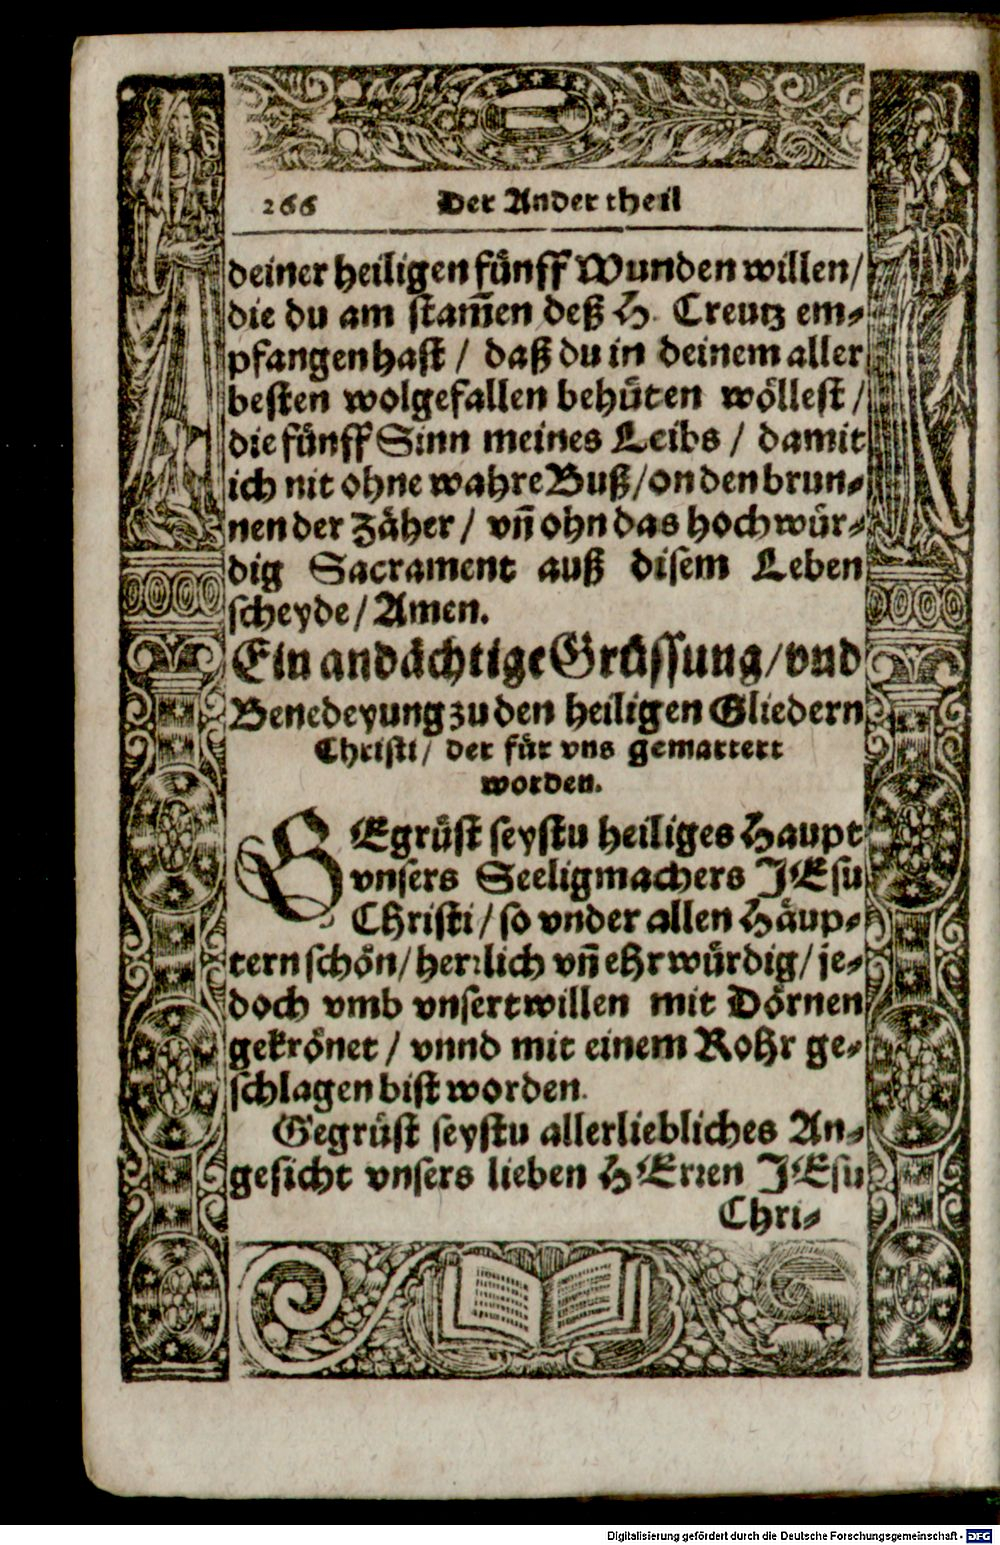 266 Der Ander theil
deiner heiligen fünff Wunden willen/
die du am stam̃en deß H. Creutz em⸗
pfangen hast / daß du in deinem aller
besten wolgefallen behüten wöllest /
die fünff Sinn meines Leibs / damit
ich nit ohne wahre Buß/on den brun⸗
nen der Zäher / vñ ohn das hochwür⸗
dig Sacrament auß disem Leben
scheyde / Amen.
Ein andächtige Grüssung/vnd
Benedeyung zu den heiligen Gliedern
Christi/ der für vns gemartert
worden.
GEgrüst seystu heiliges Haupt
vnsers Seeligmachers JEsu
Christi/ so vnder allen Häup⸗
tern schön/ herꝛlich vñ ehrwürdig/ je⸗
doch vmb vnsertwillen mit Dörnen
gekrönet / vnnd mit einem Rohr ge⸗
schlagen bist worden.
Gegrüst seystu allerliebliches An⸗
gesicht vnsers lieben HErꝛen JEsu
Chri⸗
Digitalisierung gefördert durch die Deutsche Forschungsgemeinschaft - DFG